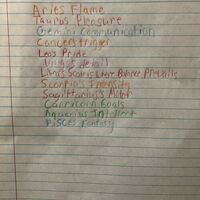 Aries Flame
Taurus Pleasure
Gemini Communication
Cancers trigger
Leo's Pride
Virgo's detail
Libra's Scale is where Balance Prevails
Scorpio's Intensity
Sagittarius's Motor
Capricorn Goals
Aquarius Intellect
Pisces Fantasy